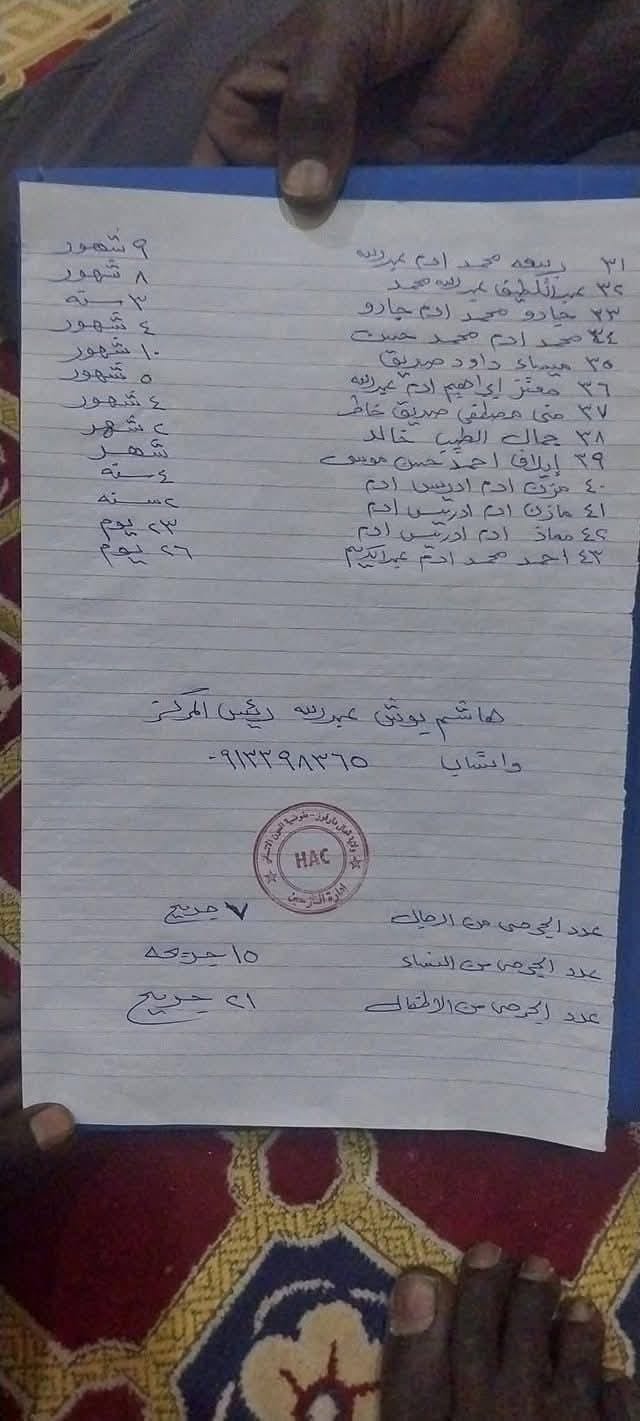 ٣١ ربيعه محمد ادم عبدالله ٩ شهور
٣٢ عبداللطيف عبدالله محمد ٨ شهور
٣٣ جادو محمد ادم جادو ٣ سنه
٣٤ محمد ادم محمد حسن ٤ شهور
٣٥ ميساء داود صديق ١٠ شهور
٣٦ معتز إبراهيم ادم عبدالله ٥ شهور
٣٧ منى مصطفى صديق خاطر ٤ شهور
٣٨ جمال الطيب خالد ٢ شهر
٣٩ إيلاف احمد حسن موسى شهر
٤٠ مزن ادم ادريس ادم ٤ سنه
٤١ مازن ادم ادريس ادم ٢ سنه
٤٢ معاذ ادم ادريس ادم ٢٣ يوم
٤٣ احمد محمد ادم عبدالكريم ٢٦ يوم
هاشم عبدالله رئيس المركز
واتساب ٠٩١٣٣٩٨٣٦٥
ولاية شمال دارفور - مفوضية العون الانساني
HAC
إدارة النازحين
عدد الجرحى من الرجال ٧ جريح
عدد الجرحى من النساء ١٥ جريحه
عدد الجرحى من الاطفال ٢١ جريح